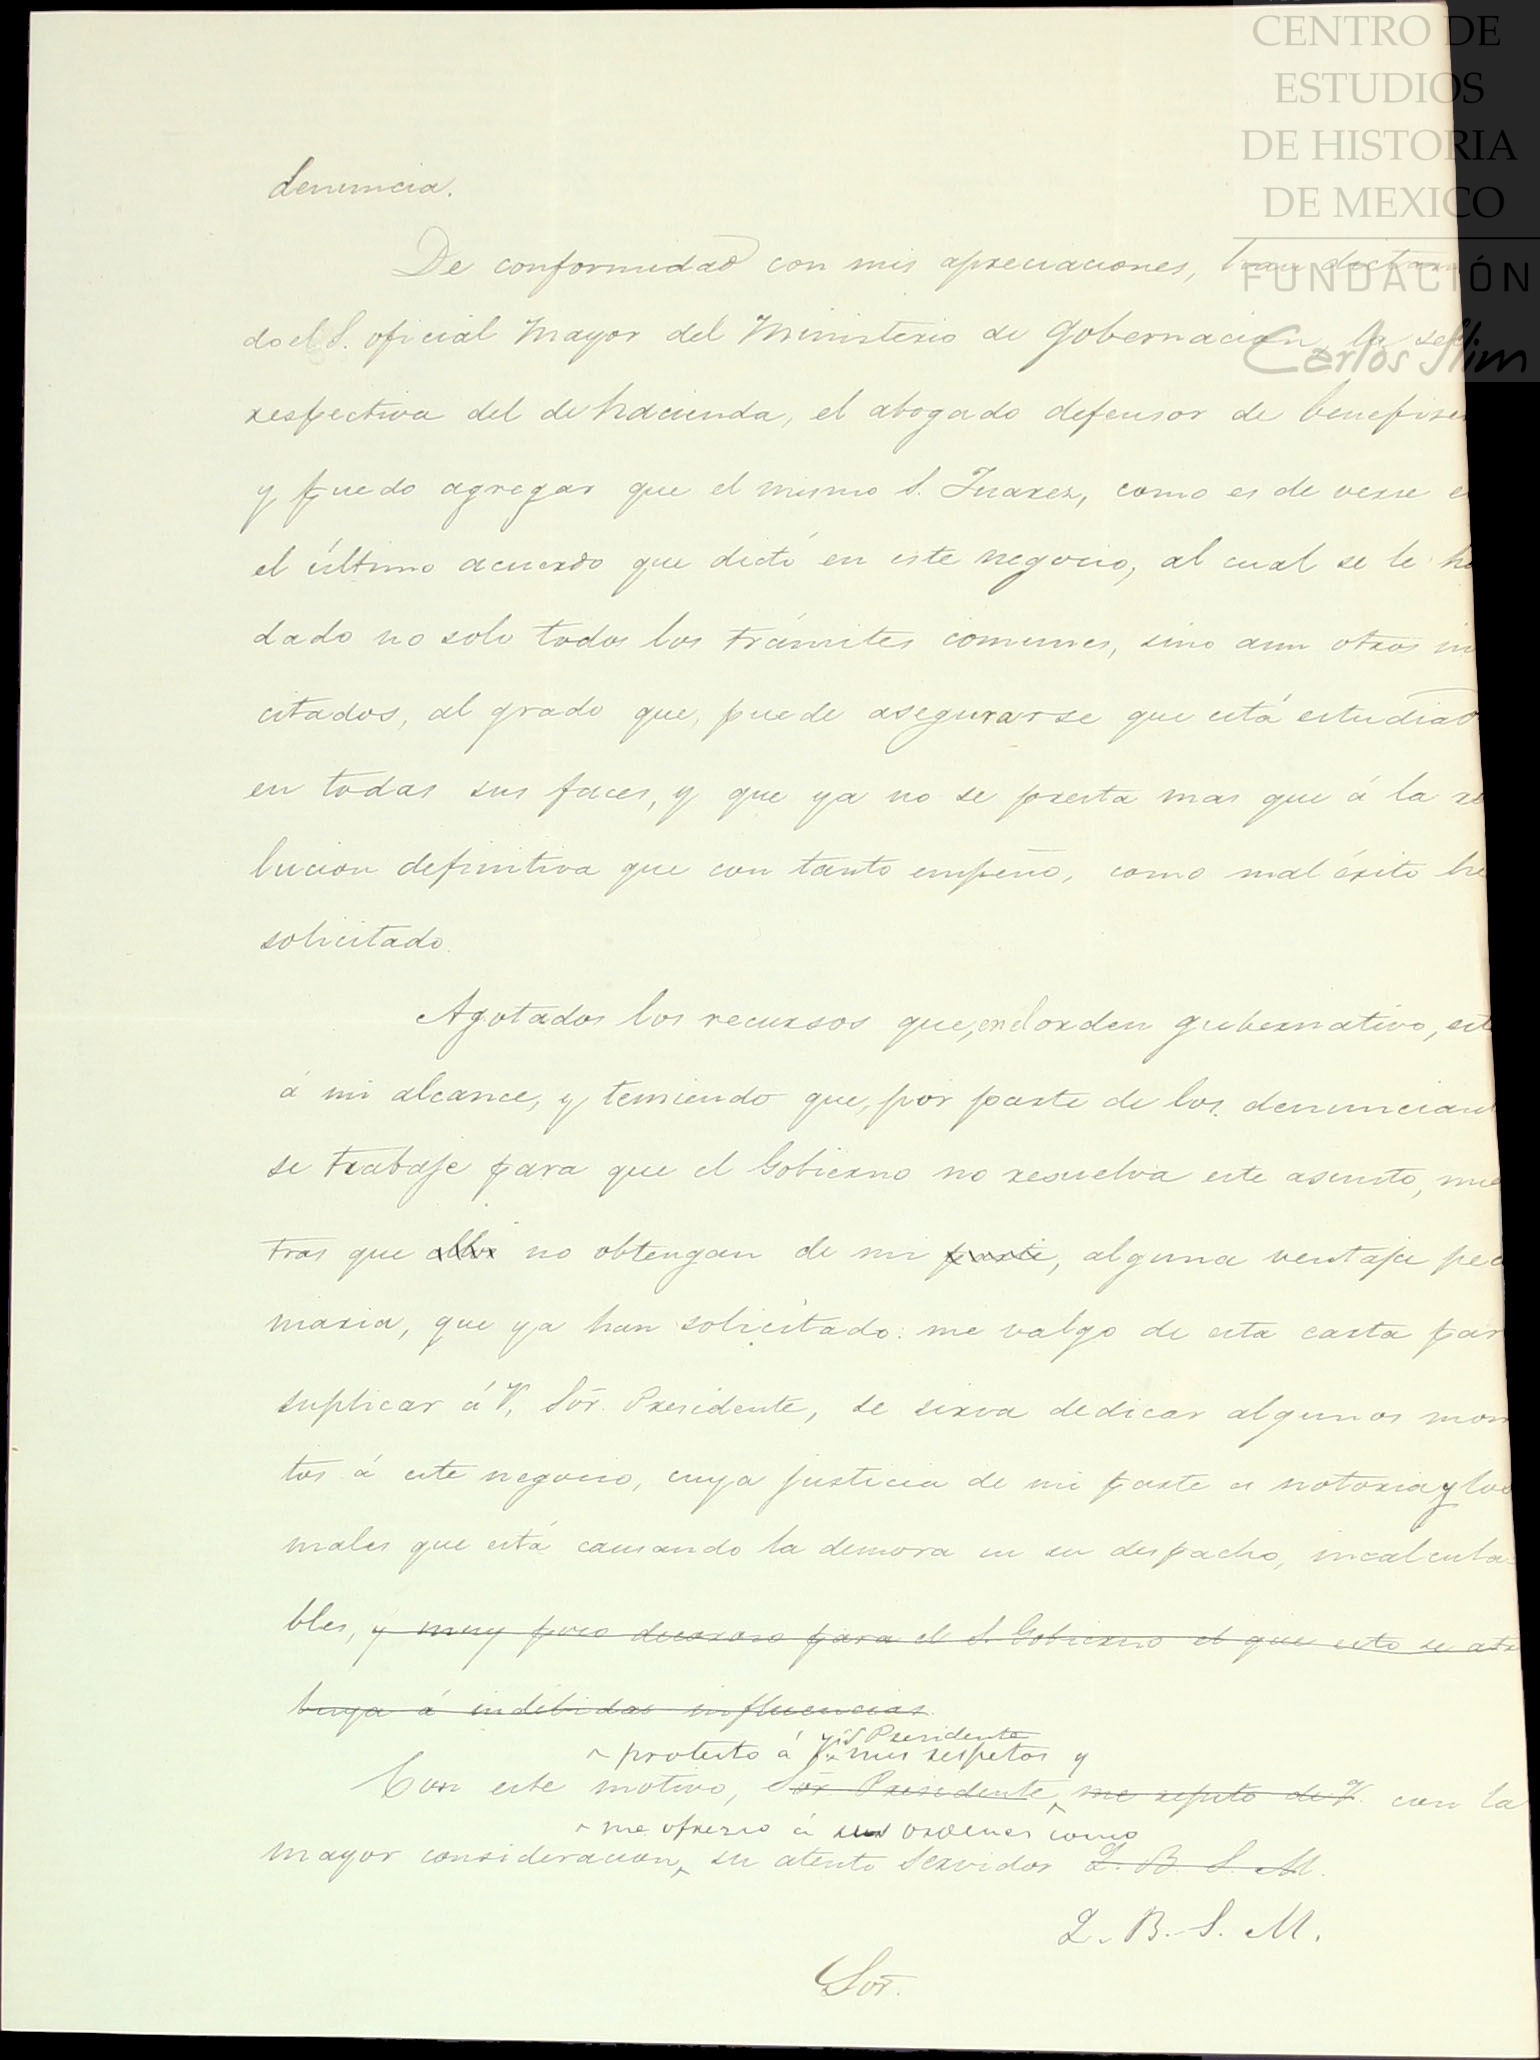 CENTRO DE
ESTUDIOS
DE HISTORIA
DE MEXICO
FUNDACIÓN
Carlos Slim
denuncia.
De conformidad con mis apreciaciones, han dictami
do el S. oficial Mayor del Ministerio de Gobernacion, la
respectiva del de hacienda, el abogado defensor de benefisen
y puedo agregar que el mismo S. Juarez, como es de verse e
el último acuerdo que dictó en este negocio, al cual se le ha
dado no solo todos los trámites comunes, sino aun otros in
citados, al grado que, puede asegurarse que está estudiad
en todas sus faces, y que ya no se presta mas que á la re
lucion definitiva que con tanto empeño, como mal éxito he
solicitado.
Agotados los recursos que, en el orden gubernativo, est
á mi alcance, y temiendo que, por parte de los denunciant
se trabaje para que el Gobierno no resuelva este asunto, mie
tras que allá no obtengan de mi parte, alguna ventaja pec
niaria, que ya han solicitado: me valgo de esta carta par
suplicar á V, Sōr. Presidente, se sirva dedicar algunos mom
tos á este negocio, cuya justicia de mi parte es notoria y los
males que está causando la demora en su despacho, incalcula=
bles, y muy poco decoroso para el S. Gobierno el que esto se atri
buya á indebidas influencias.
S Presidente
protesto á V. mis respetos y
Con este motivo, Sōr Presidente, me repito de V. con la
me ofresco á sus ordenes como
mayor consideracion, su atento servidor Q. B. S. M.
Q. B. S. M.
Sōr.